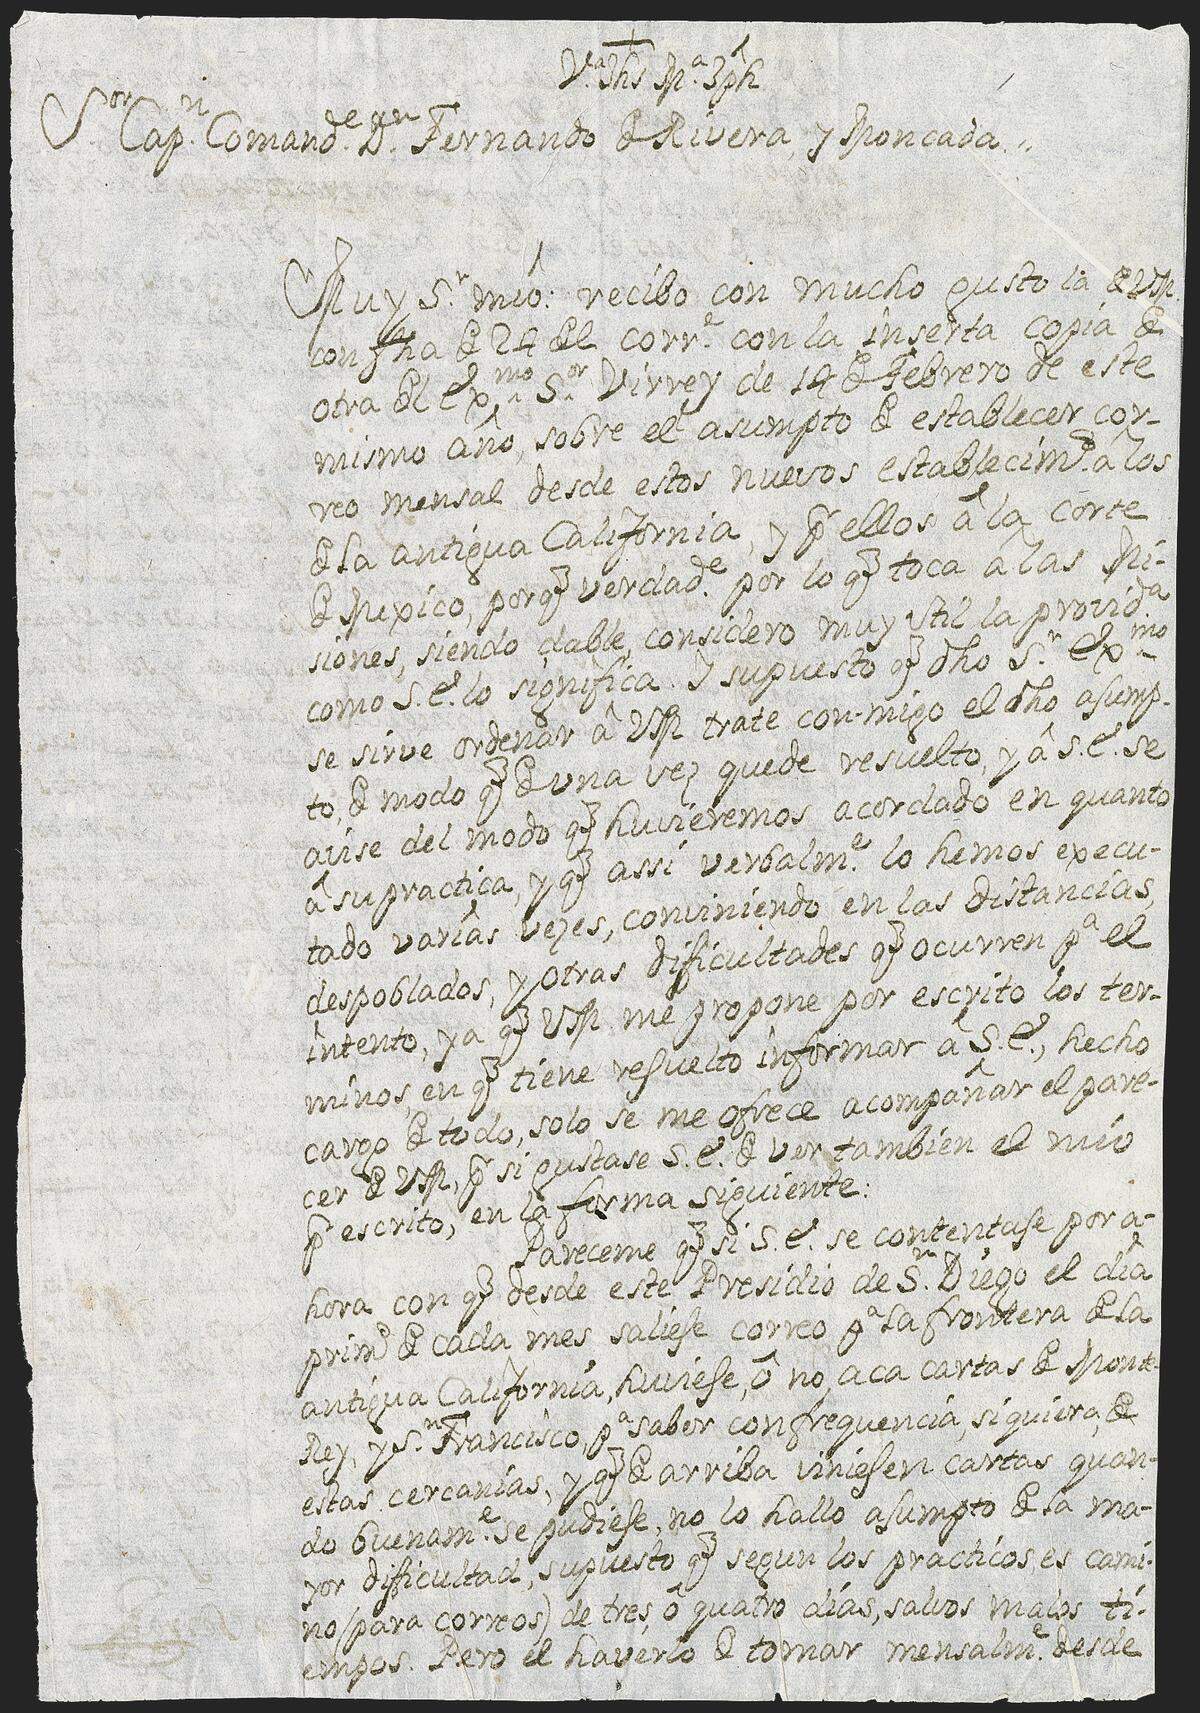 V.ª Jhs M.ª Jph
S.or Cap.n Comand.te D.n Fernando de Rivera, y Moncada.
Muy S.r mio: recibo con mucho gusto la de VM.
con fha de 24 del corr.e con la inserta copia de
otra del Ex.mo S.or Virrey de 14 de Febrero de este
mismo año, sobre el asumpto de establecer cor-
reo mensal desde estos nuevos establecim.s â los
de la antigua California, y p.r ellos â la corte
de Mexico, porq.e verdad.e por lo q.e toca â las Mi-
siones, siendo dable, considero muy util la provid.a
como S.E. lo significa. Y supuesto q.e dho S.r Ex.mo
se sirve ordenar â VM trate con-migo el dho asump-
to, de modo q.e de una vez quede resuelto, y â S.E. se
avise del modo q.e huvieremos acordado en quanto
â su practica, y q.e assi verbalm.e lo hemos execu-
tado varias vezes, conviniendo en las distancias,
despoblados, y otras dificultades q.e ocurren p.a el
intento, ya q.e VM. me propone por escrito los ter-
minos, en q.e tiene resuelto informar â S.E., hecho
cargo de todo, solo se me ofrece acompañar el pare-
cer de VM, p.r si gustase S.E. de ver tambien el mio
p.r escrito, en la forma siguiente:
Pareceme q.e si S.E. se contentase por a-
hora con q.e desde este Presidio de S.n Diego el dia
prim.o de cada mes saliese correo p.a la frontera de la
antigua California, huviese, ô no, aca cartas de Monte-
Rey, y S.n Francisco, p.a saber con frequencia, siquiera, de
estas cercanias, y q.e de arriba viniesen cartas quan-
do buenam.e se pudiese, no lo hallo asumpto de la ma-
yor dificultad, supuesto q.e segun los practicos, es cami-
no (para correos) de tres, ô quatro dias, salvos malos ti-
empos. Pero el haverlo de tomar mensalm.e desde